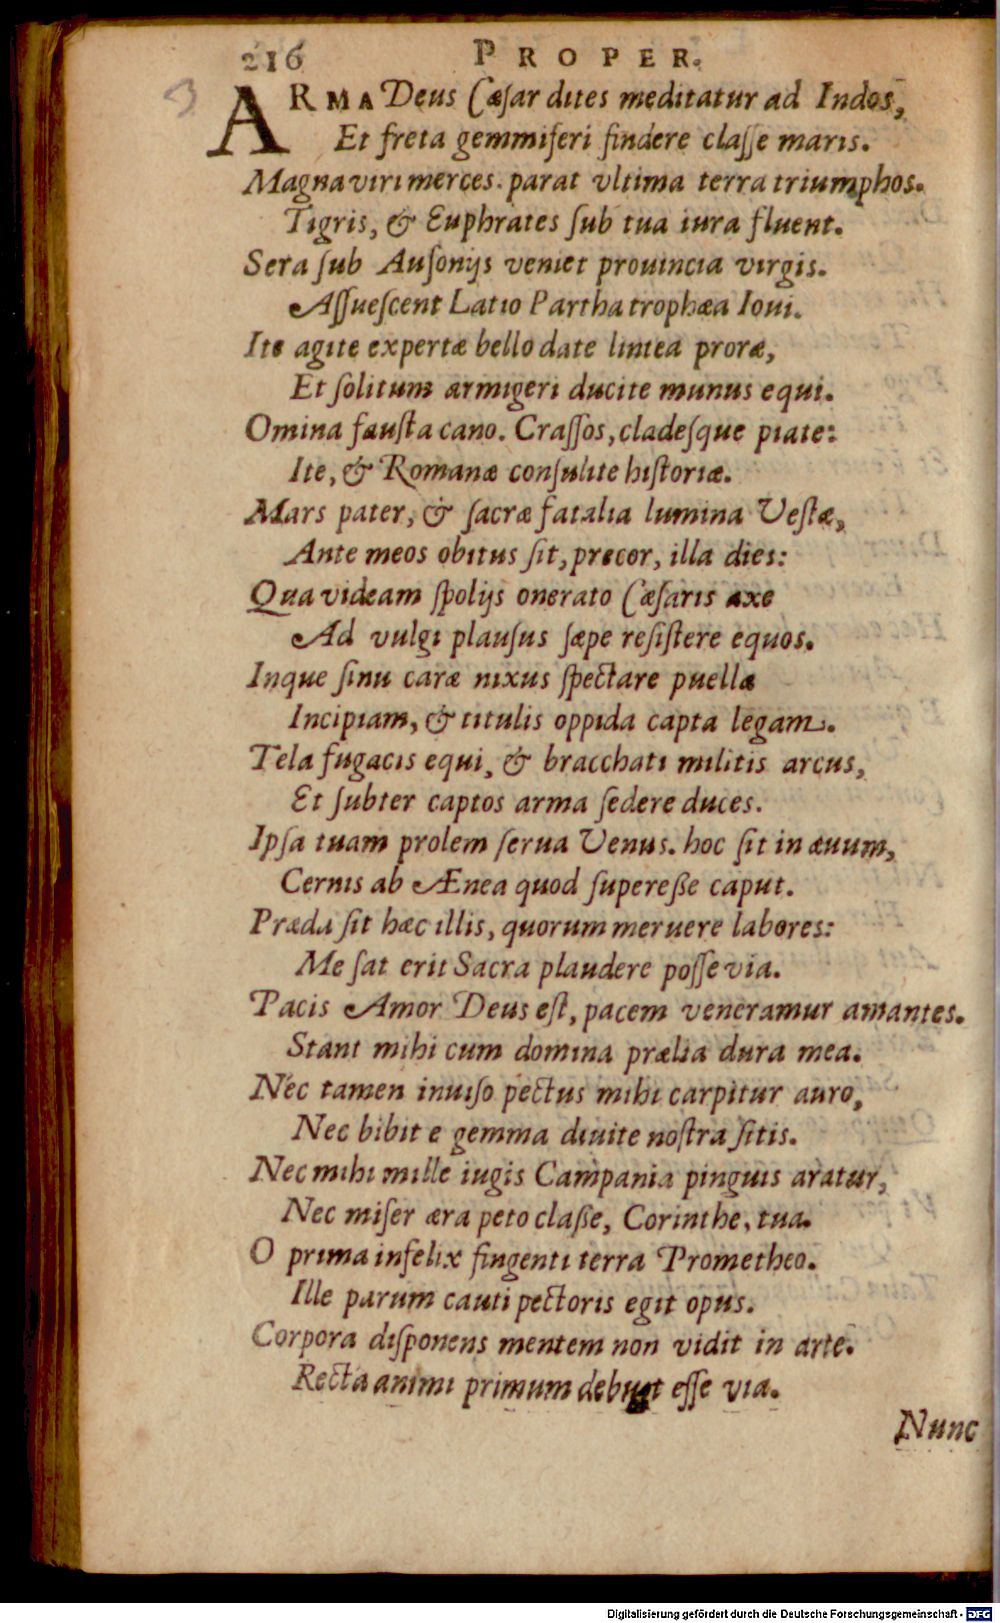 216 PROPER.
ARMA Deus Cæſar dites meditatur ad Indos,
Et freta gemmiferi findere claſſe maris.
Magna viri merces. parat vltima terra triumphos.
Tigris, & Euphrates ſub tua iura fluent.
Sera ſub Auſonijs veniet prouincia virgis.
Aſſueſcent Latio Partha trophæa Ioui.
Ite agite expertæ bello date lintea proræ,
Et ſolitum armigeri ducite munus equi.
Omina fauſta cano. Craſſos, cladeſque piate:
Ite, & Romanæ conſulite hiſtoriæ.
Mars pater, & ſacræ fatalia lumina Veſtæ,
Ante meos obitus ſit, precor, illa dies:
Qua videam ſpolijs onerato Cæſaris axe
Ad vulgi plauſus ſæpe reſiſtere equos.
Inque ſinu caræ nixus ſpectare puellæ
Incipiam, & titulis oppida capta legam.
Tela fugacis equi, & bracchati militis arcus,
Et ſubter captos arma ſedere duces.
Ipſa tuam prolem ſerua Venus. hoc ſit in æuum,
Cernis ab Ænea quod ſupereße caput.
Præda ſit hæc illis, quorum meruere labores:
Me ſat erit Sacra plaudere poſſe via.
Pacis Amor Deus eſt, pacem veneramur amantes.
Stant mihi cum domina prælia dura mea.
Nec tamen inuiſo pectus mihi carpitur auro,
Nec bibit e gemma diuite noſtra ſitis.
Nec mihi mille iugis Campania pinguis aratur,
Nec miſer æra peto claße, Corinthe, tua.
O prima infelix fingenti terra Prometheo.
Ille parum cauti pectoris egit opus.
Corpora diſponens mentem non vidit in arte.
Recta animi primum debuit eſſe via.
Nunc
Digitalisierung gefördert durch die Deutsche Forschungsgemeinschaft - DFG